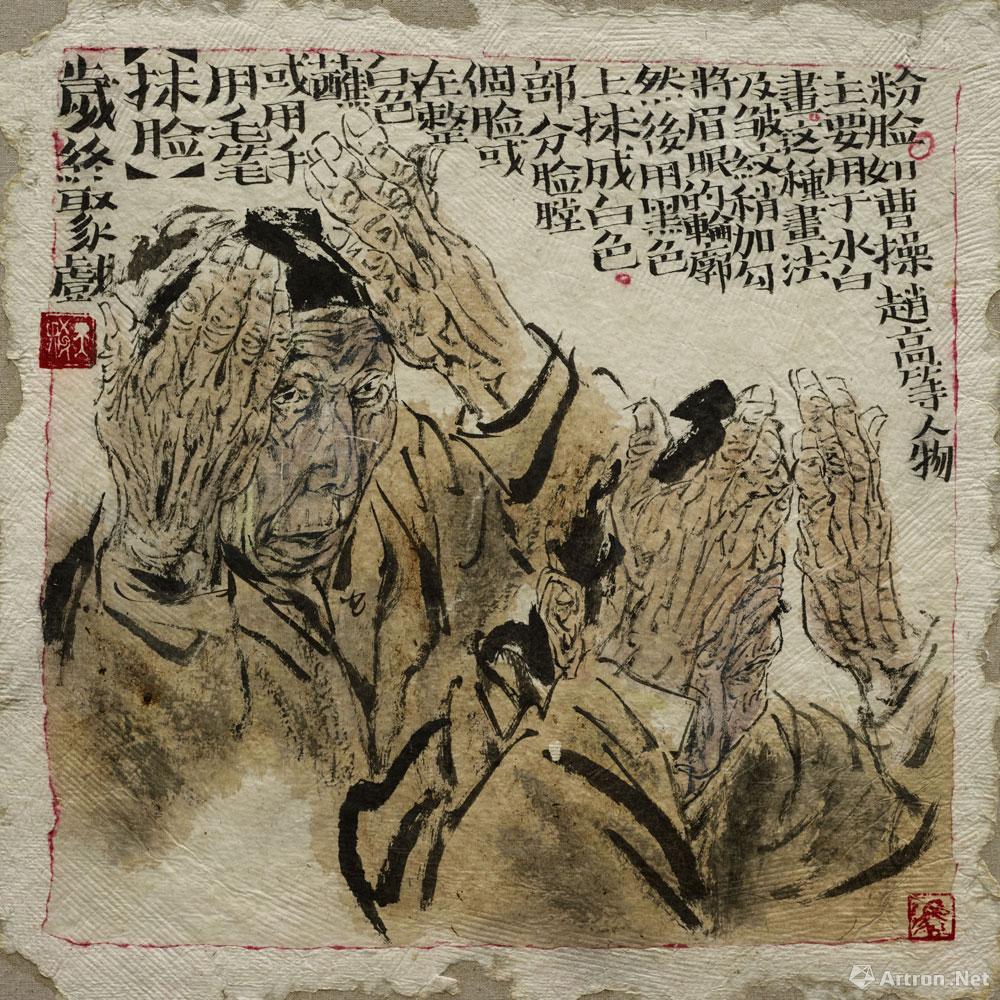 歲終聚戲
【抹脸】
用毛笔
或用手
蘸
白色
在整
個脸或
部分脸膛
上抹成白色
然後用黑色
將眉眼的輪廓
及皱紋稍加勾
畫这種畫法
主要用于水白
粉脸如曹操趙高等人物
Artron.Net